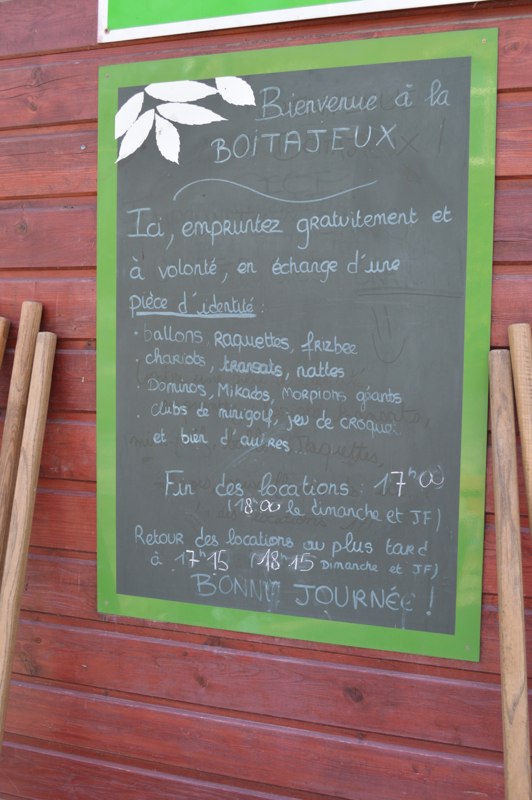 Bienvenue à la
BOITAJEUX
Ici, empruntez gratuitement et
à volonté, en échange d'une
pièce d'identité :
· ballons, raquettes, frizbee
· chariots, transats, nattes
Dominos, Mikados, Morpions géants
· clubs de minigolf, jeu de croquet
et bien d'autres
Fin des locations : 17h00
(18h00 le dimanche et JF)
Retour des locations au plus tard
à 17h15 (18h15 Dimanche et JF)
BONNE JOURNÉE !